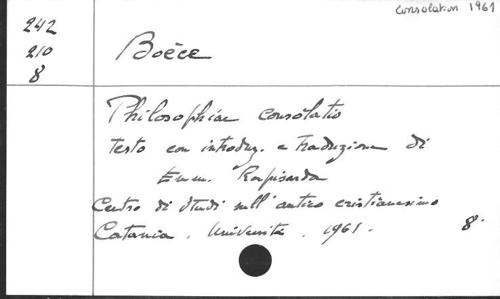 Consolation 1961
242
210
8
Boèce
Philosophiae consolatio
testo con introduz. e traduzione di
Emm. Rapisarda
Centro di studi sull'antico cristianesimo
Catania. Università. 1961. 8°